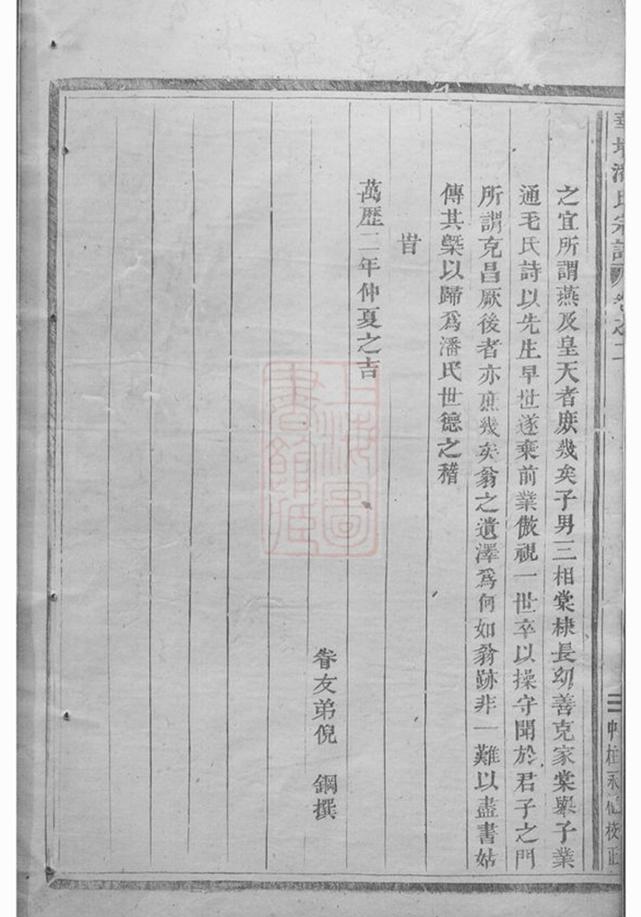 潘氏宗譜 卷之二
之宜所謂燕及皇天者庶幾矣子男三相棠棣長幼善克家棠舉子業
通毛氏詩以先生早世遂棄前業傲視一世卒以操守聞於君子之門
所謂克昌厥後者亦庶幾矣翁之遺澤爲何如翁跡非一難以盡書姑
傳其槩以歸爲潘氏世德之稽
旹
萬歷二年仲夏之吉
眷友弟倪 鋼撰
上海圖書館藏